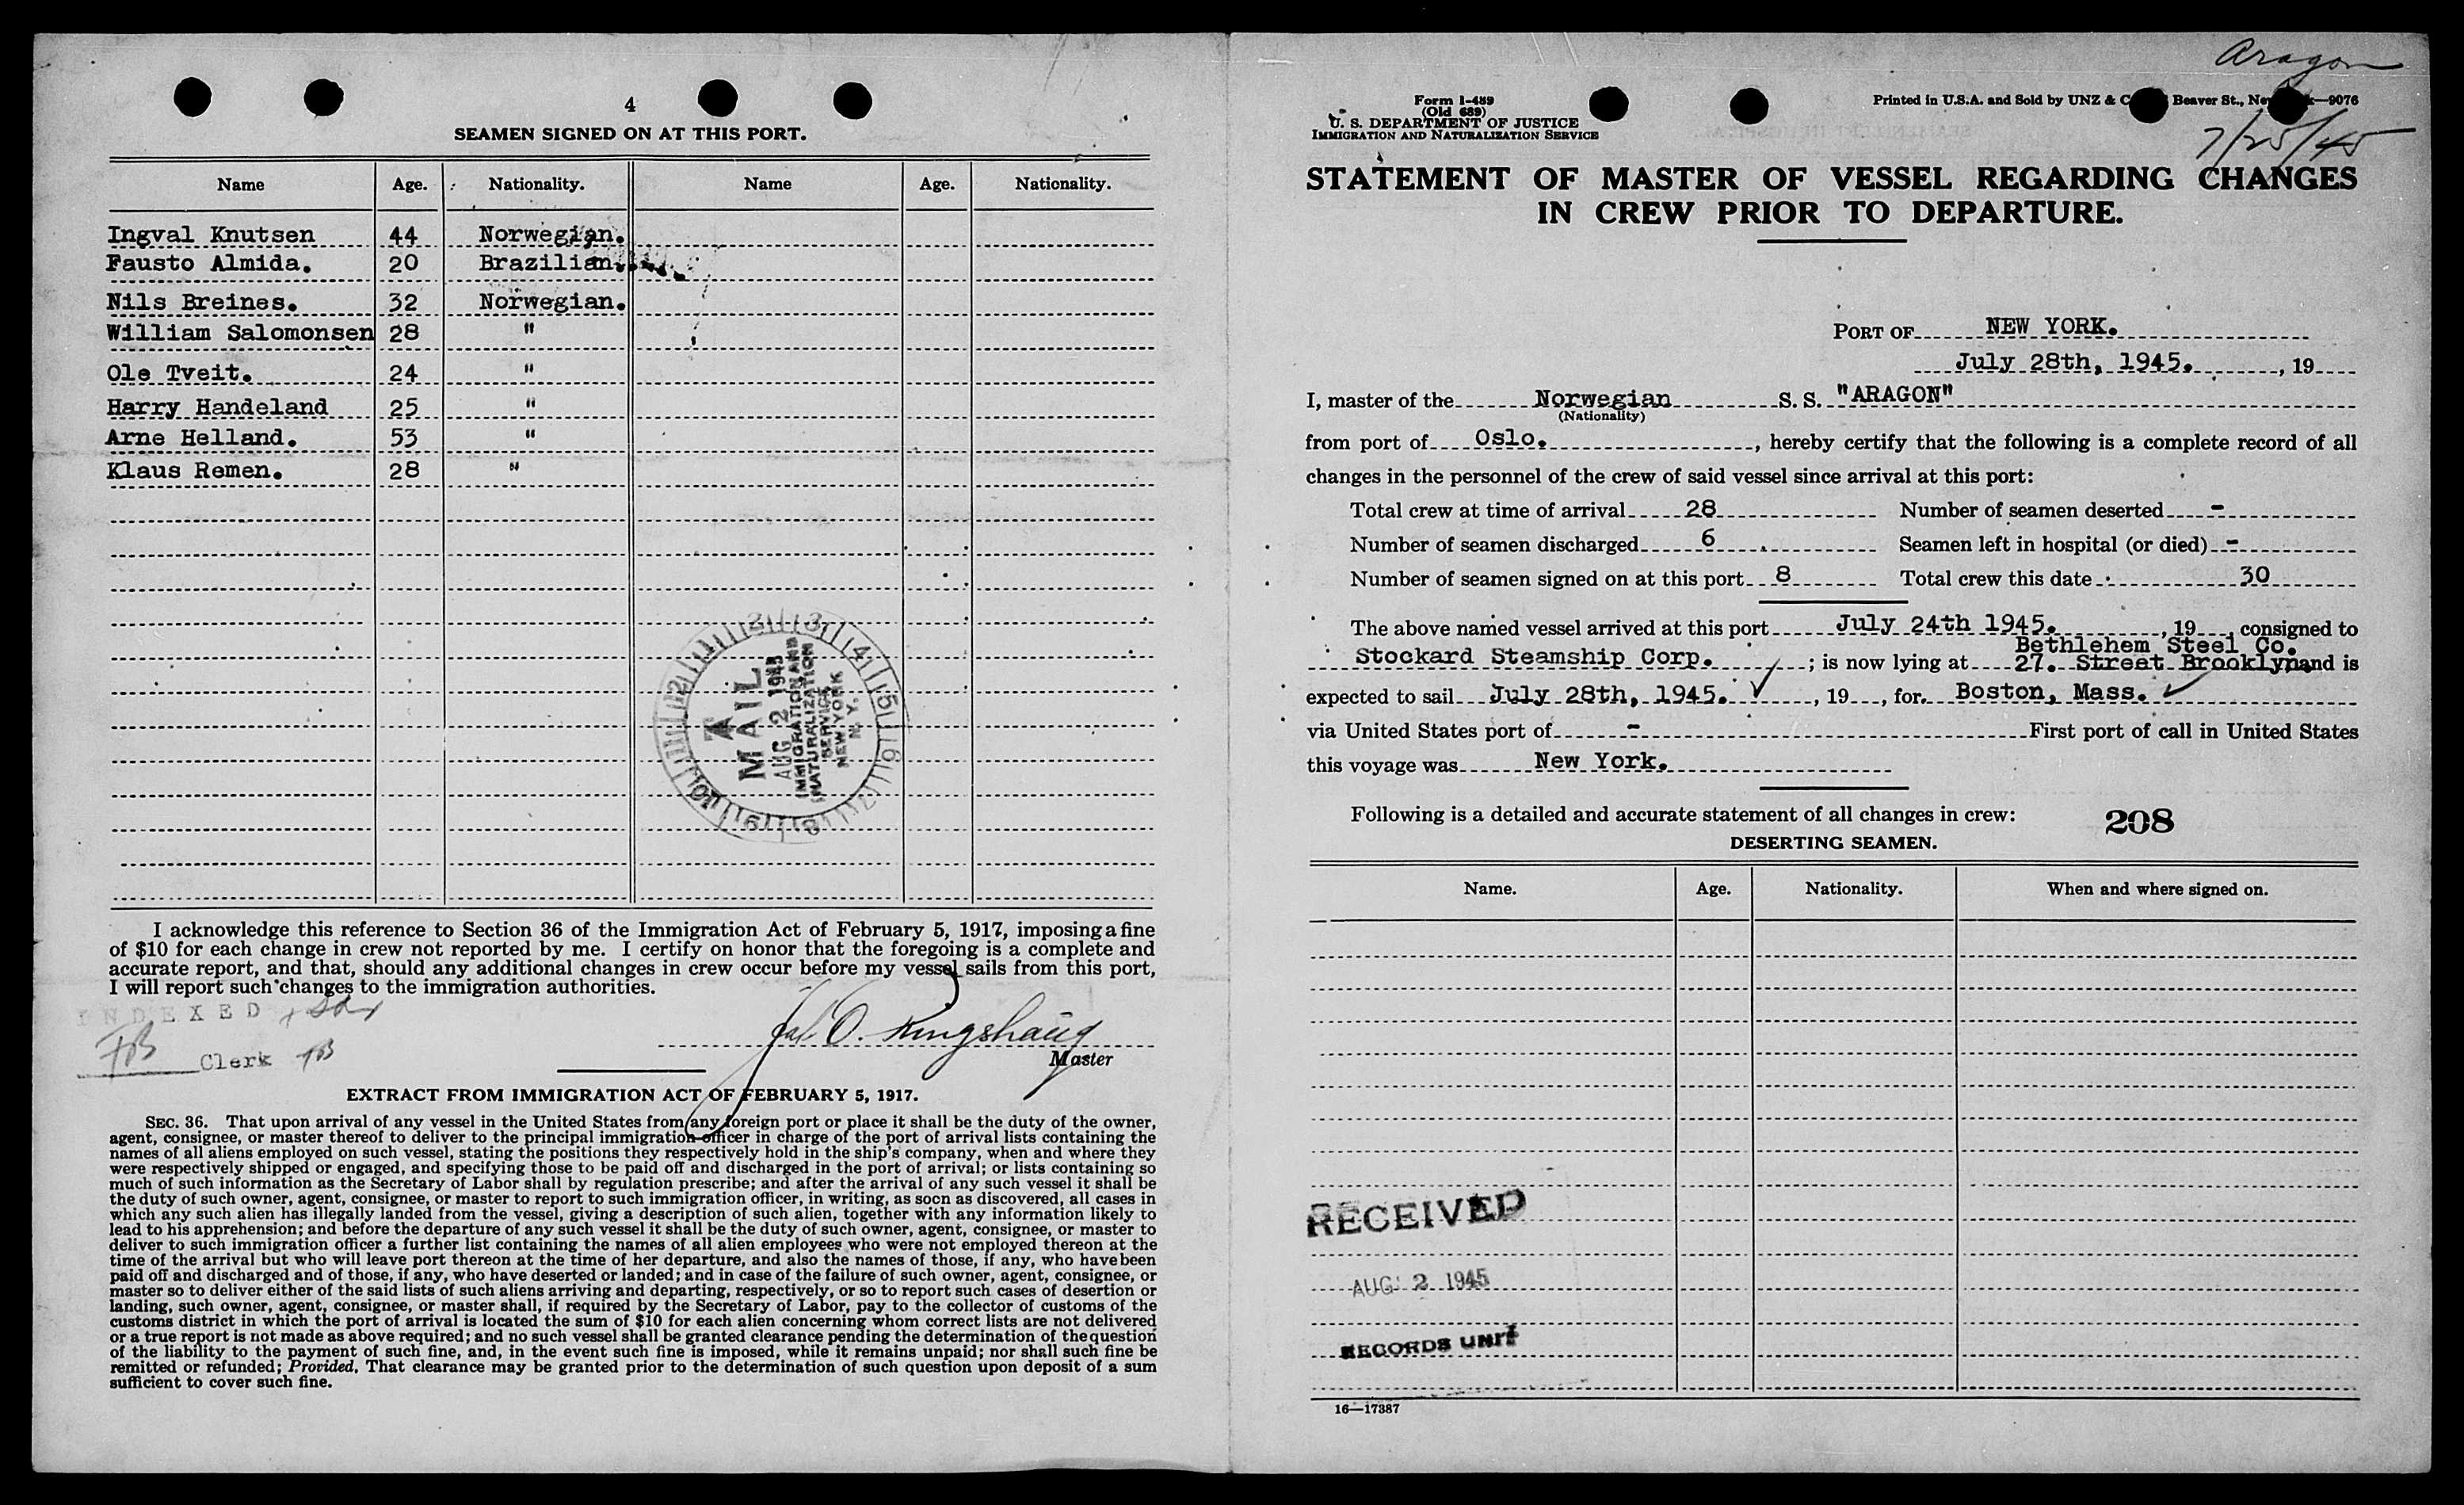 4
SEAMEN SIGNED ON AT THIS PORT.
Name Age. Nationality. Name Age. Nationality.
Ingval Knutsen 44 Norwegian.
Fausto Almida. 20 Brazilian.
Nils Breines. 32 Norwegian.
William Salomonsen 28 "
Ole Tveit. 24 "
Harry Handeland 25 "
Arne Helland. 53 "
Klaus Remen. 28 "
12 1 2 3 4 5 6 7 8 9 10 11
A
MAIL
AUG 2 1945
IMMIGRATION AND
NATURALIZATION
SERVICE
NEW YORK
N. Y.
I acknowledge this reference to Section 36 of the Immigration Act of February 5, 1917, imposing a fine
of $10 for each change in crew not reported by me. I certify on honor that the foregoing is a complete and
accurate report, and that, should any additional changes in crew occur before my vessel sails from this port,
I will report such changes to the immigration authorities.
INDEXED
FB Clerk FB
O. Ringshaug
Master
EXTRACT FROM IMMIGRATION ACT OF FEBRUARY 5, 1917.
SEC. 36. That upon arrival of any vessel in the United States from any foreign port or place it shall be the duty of the owner,
agent, consignee, or master thereof to deliver to the principal immigration officer in charge of the port of arrival lists containing the
names of all aliens employed on such vessel, stating the positions they respectively hold in the ship's company, when and where they
were respectively shipped or engaged, and specifying those to be paid off and discharged in the port of arrival; or lists containing so
much of such information as the Secretary of Labor shall by regulation prescribe; and after the arrival of any such vessel it shall be
the duty of such owner, agent, consignee, or master to report to such immigration officer, in writing, as soon as discovered, all cases in
which any such alien has illegally landed from the vessel, giving a description of such alien, together with any information likely to
lead to his apprehension; and before the departure of any such vessel it shall be the duty of such owner, agent, consignee, or master to
deliver to such immigration officer a further list containing the names of all alien employees who were not employed thereon at the
time of the arrival but who will leave port thereon at the time of her departure, and also the names of those, if any, who have been
paid off and discharged and of those, if any, who have deserted or landed; and in case of the failure of such owner, agent, consignee, or
master so to deliver either of the said lists of such aliens arriving and departing, respectively, or so to report such cases of desertion or
landing, such owner, agent, consignee, or master shall, if required by the Secretary of Labor, pay to the collector of customs of the
customs district in which the port of arrival is located the sum of $10 for each alien concerning whom correct lists are not delivered
or a true report is not made as above required; and no such vessel shall be granted clearance pending the determination of the question
of the liability to the payment of such fine, and, in the event such fine is imposed, while it remains unpaid; nor shall such fine be
remitted or refunded; Provided, That clearance may be granted prior to the determination of such question upon deposit of a sum
sufficient to cover such fine.
Aragon
7/25/45
Form I-489
(Old 689)
U. S. DEPARTMENT OF JUSTICE
IMMIGRATION AND NATURALIZATION SERVICE
Printed in U.S.A. and Sold by UNZ & C Beaver St., Ne k—9076
STATEMENT OF MASTER OF VESSEL REGARDING CHANGES
IN CREW PRIOR TO DEPARTURE.
PORT OF NEW YORK.
July 28th, 1945. , 19
I, master of the Norwegian S. S. "ARAGON"
(Nationality)
from port of Oslo. , hereby certify that the following is a complete record of all
changes in the personnel of the crew of said vessel since arrival at this port:
Total crew at time of arrival 28 Number of seamen deserted -
Number of seamen discharged 6 Seamen left in hospital (or died) -
Number of seamen signed on at this port 8 Total crew this date 30
The above named vessel arrived at this port July 24th 1945. , 19 , consigned to
Bethlehem Steel Co.
Stockard Steamship Corp. ; is now lying at 27. Street Brooklyn and is
expected to sail July 28th, 1945. , 19 , for Boston, Mass.
via United States port of - First port of call in United States
this voyage was New York.
Following is a detailed and accurate statement of all changes in crew:
208
DESERTING SEAMEN.
Name. Age. Nationality. When and where signed on.
RECEIVED
AUG 2 1945
RECORDS UNIT
16—17387